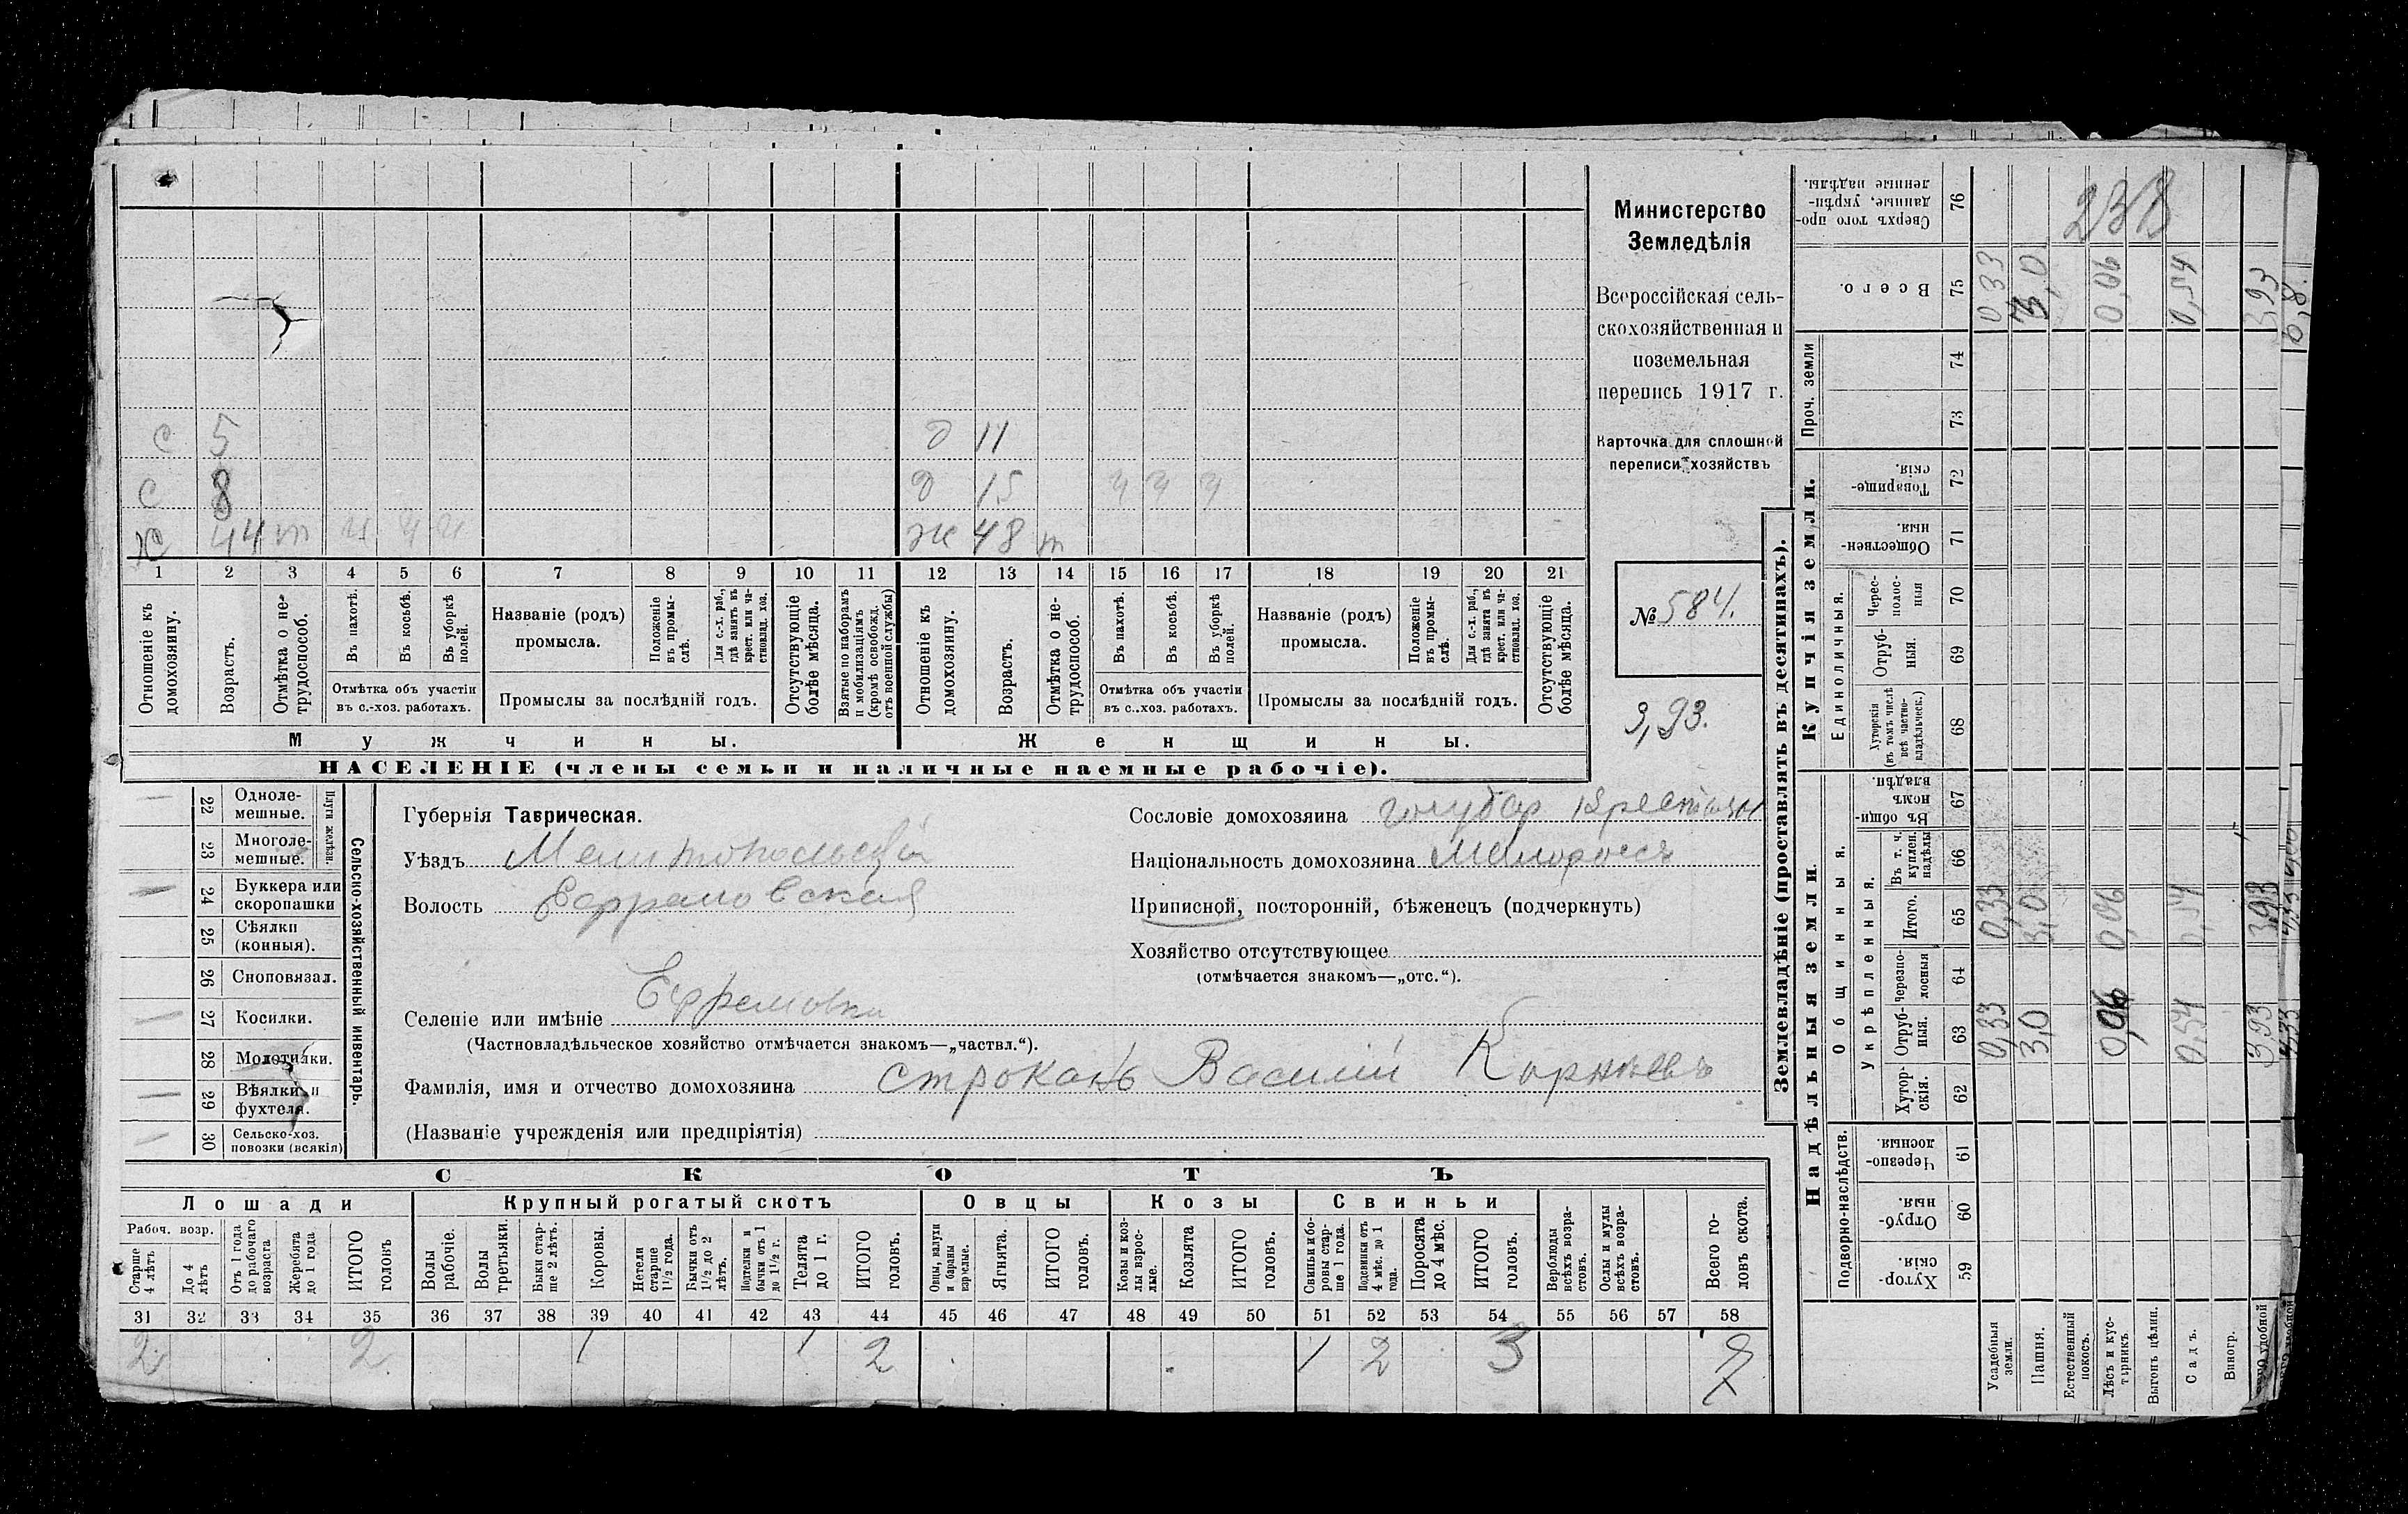 С 5 д 11
С 8 д 15 ч ч ч
Х 44 т ч ч ч ж 48 т
1 2 3 4 5 6 7 8 9 10 11 12 13 14 15 16 17 18 19 20 21
Отношеніе къ домохозяину.
Возрастъ.
Отмѣтка о не-трудоспособ.
Въ пахотѣ.
Въ косьбѣ.
Въ уборкѣ полей.
Отмѣтка объ участіи въ с.-хоз. работахъ.
Названіе (родъ) промысла.
Положеніе въ промы-слѣ.
Для с.-х. раб., гдѣ занятъ въ крест. или ча-стновлад. хоз.
Промыслы за послѣдній годъ.
Отсутствующіе болѣе мѣсяца.
Взятые по наборамъ и мобилизаціямъ (кромѣ освобожд. отъ военной службы)
Отношеніе къ домохозяину.
Возрастъ.
Отмѣтка о не-трудоспособ.
Въ пахотѣ.
Въ косьбѣ.
Въ уборкѣ полей.
Отмѣтка объ участіи въ с.-хоз. работахъ.
Названіе (родъ) промысла.
Положеніе въ промы-слѣ.
Для с.-х. раб., гдѣ занята въ крест. или ча-стновлад. хоз.
Промыслы за послѣдній годъ.
Отсутствующіе болѣе мѣсяца.
Мужчины. Женщины.
НАСЕЛЕНІЕ (члены семьи и наличные наемные рабочіе).
Министерство
Земледѣлія
Всероссійская сель-
скохозяйственная и
поземельная
перепись 1917 г.
Карточка для сплошной
переписи хозяйствъ
№ 584.
3,93.
Сельско-хозяйственный инвентарь.
Плуги желѣзн.
22 Одноле-мешные.
23 Многоле-мешные.
24 Буккера или скоропашки
25 Сѣялки (конныя).
26 Сноповязал.
27 Косилки.
28 Молотилки.
29 Вѣялки и фухтеля.
30 Сельско-хоз. повозки (всякія)
Губернія Таврическая.
Уѣздъ Мелитопольскій
Волость Ефремовская
Селеніе или имѣніе Ефремовка
(Частновладѣльческое хозяйство отмѣчается знакомъ—„частвл.“).
Фамилія, имя и отчество домохозяина Строкань Василій Корнѣевъ
(Названіе учрежденія или предпріятія)
Сословіе домохозяина
Національность домохозяина Малороссъ
Приписной, посторонній, бѣженецъ (подчеркнуть)
Хозяйство отсутствующее
(отмѣчается знакомъ—„отс.“).
СКОТЪ
Лошади Крупный рогатый скотъ Овцы Козы Свиньи
Рабоч. возр.
Старше 4 лѣтъ
До 4 лѣтъ
Отъ 1 года до рабочаго возраста
Жеребята до 1 года
ИТОГО головъ
Волы рабочіе.
Волы третьяки.
Быки стар-ше 2 лѣтъ.
Коровы.
Нетели старше 1½ года.
Бычки отъ 1½ до 2 лѣтъ.
Подтелки и бычки отъ 1 до 1½ г.
Телята до 1 г.
ИТОГО головъ.
Овцы, валухи и бараны взрослые.
Ягнята.
ИТОГО головъ.
Козы и коз-лы взрос-лые.
Козлята
ИТОГО головъ.
Свиньи и бо-ровы стар-ше 1 года.
Подсвинки отъ 4 мѣс. до 1 года.
Поросята до 4 мѣс.
ИТОГО головъ.
Верблюды всѣхъ возра-стовъ.
Ослы и мулы всѣхъ возра-стовъ.
Всего го-ловъ скота.
31 32 33 34 35 36 37 38 39 40 41 42 43 44 45 46 47 48 49 50 51 52 53 54 55 56 57 58
2 2 1 1 2 1 2 3 7
Землевладѣніе (проставлять въ десятинахъ).
Надѣльныя земли. Купчія земли.
Подворно-наслѣдств. Общинныя. Единоличныя. Проч. земли
Укрѣпленныя.
Хутор-скія. 59
Отруб-ныя. 60
Черезпо-лосныя 61
Хутор-скія. 62
Отруб-ныя. 63
Черезпо-лосныя 64
Итого. 65
Въ т. ч. куплен. надѣлы 66
Въ общи-номъ владѣн. 67
Хуторскія (въ томъ числѣ всѣ частно-владѣльческ.) 68
Отруб-ныя. 69
Черес-полос-ныя 70
Обществен-ныя. 71
Товарище-скія. 72
73
74
Всего. 75
Сверхъ того про-данные, укрѣп-ленные надѣлы. 76
Усадебныя земли. 0,33 0,33 0,33
Пашня. 3,0 3,0 3,0
Естественный покосъ.
Лѣсъ и кус-тарникъ 0,06 0,06 0,06
Выгонъ цѣлин.
Садъ. 0,54 0,54 0,54
Виногр.
удобной 3,93 3,93 3,93
238